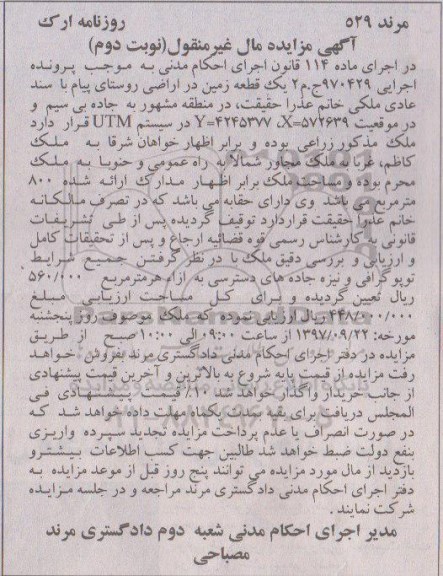 مرند ۵۲۹ روزنامه ارک
آگهی مزایده مال غیرمنقول(نوبت دوم)
در اجرای ماده ۱۱۴ قانون اجرای احکام مدنی به موجب پرونده
اجرایی ۹۷۰۴۲۹ج.م۲ یک قطعه زمین در اراضی روستای پیام با سند
عادی ملکی خانم عذرا حقیقت، در منطقه مشهور به جاده بی سیم و
در موقعیت X=۵۷۲۶۳۹، Y=۴۲۴۵۳۷۷ در سیستم UTM قرار دارد
ملک مذکور زراعی بوده و برابر اظهار خواهان شرقا به ملک
کاظم، غربا به ملک مجاور شمالا به راه عمومی و جنوبا به ملک
محرم بوده و مساحت ملک برابر اظهار مدارک ارائه شده ۸۰۰
مترمربع می باشد وی دارای حقابه می باشد که در تصرف مالکانه
خانم عذرا حقیقت قراردارد توقیف گردیده پس از طی تشریفات
قانونی به کارشناس رسمی قوه قضائیه ارجاع و پس از تحقیقات کامل
و ارزیابی و بررسی دقیق ملک با در نظر گرفتن جمیع شرایط
توپوگرافی و نیزه جاده های دسترسی به ازاء هرمترمربع ۵۶۰/۰۰۰
ریال تعیین گردیده و برای کل مساحت ارزیابی مبلغ
۴۴۸/۰۰۰/۰۰۰ ریال ارزیابی نموده که ملک موصوف روز پنجشنبه
مورخه: ۱۳۹۷/۰۹/۲۲ از ساعت ۰۹:۰۰ الی ۱۰:۰۰ صبح از طریق
مزایده در دفتر اجرای احکام مدنی دادگستری مرند بفروش خواهد
رفت مزایده از قیمت پایه شروع به بالاترین و آخرین قیمت پیشنهادی
از جانب خریدار واگذار خواهد شد ۱۰٪ قیمت پیشنهادی فی
المجلس دریافت برای بقیه مدت یکماه مهلت داده خواهد شد که
در صورت انصراف یا عدم پرداخت مزایده تجدید سپرده واریزی
بنفع دولت ضبط خواهد شد طالبین جهت کسب اطلاعات بیشترو
بازدید از مال مورد مزایده می توانند پنج روز قبل از موعد مزایده به
دفتر اجرای احکام مدنی دادگستری مرند مراجعه و در جلسه مزایده
شرکت نمایند .
مدیر اجرای احکام مدنی شعبه دوم دادگستری مرند
مصباحی